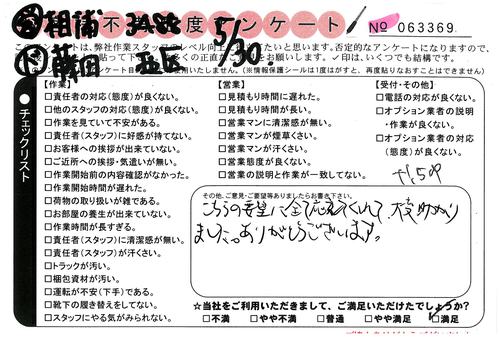 不　度アンケート
№ 063369
このアンケートは、弊社作業スタッフのレベル向上
たいと思います。否定的なアンケートになりますので、
お願いします。✓印は、いくつでも結構です。
いたしません。（※情報保護シールは1度はがすと、再度貼りなおすことはできません）
チェックリスト
【作業】
□責任者の対応（態度）が良くない。
□他のスタッフの対応（態度）が良くない。
□作業を見ていて不安がある。
□責任者（スタッフ）に好感が持てない。
□お客様への挨拶が出来ていない。
□ご近所への挨拶・気遣いが無い。
□作業開始前の内容確認がなかった。
□作業開始時間が遅れた。
□荷物の取り扱いが雑である。
□お部屋の養生が出来ていない。
□作業時間が長すぎる。
□責任者（スタッフ）に清潔感が無い。
□責任者（スタッフ）が汗くさい。
□トラックが汚い。
□梱包資材が汚い。
□運転が不安（下手）である。
□靴下の履き替えをしてない。
□スタッフにやる気がみられない。
【営業】
□見積もり時間に遅れた。
□見積もり時間が長い。
□営業マンに清潔感が無い。
□営業マンが煙草くさい。
□営業マンが汗くさい。
□営業態度が良くない。
□営業の説明と作業が一致してない。
【受付・その他】
□電話の対応が良くない。
□オプション業者の説明
・作業が良くない。
□オプション業者の対応
（態度）が良くない。
その他、ご意見・ご要望等ありましたらお書き下さい。
こちらの要望に全て応えてくれて、大変助かり
ました。ありがとうございます。
☆当社をご利用いただきまして、ご満足いただけたでしょうか？
□不満　□やや不満　□普通　□やや満足　□満足